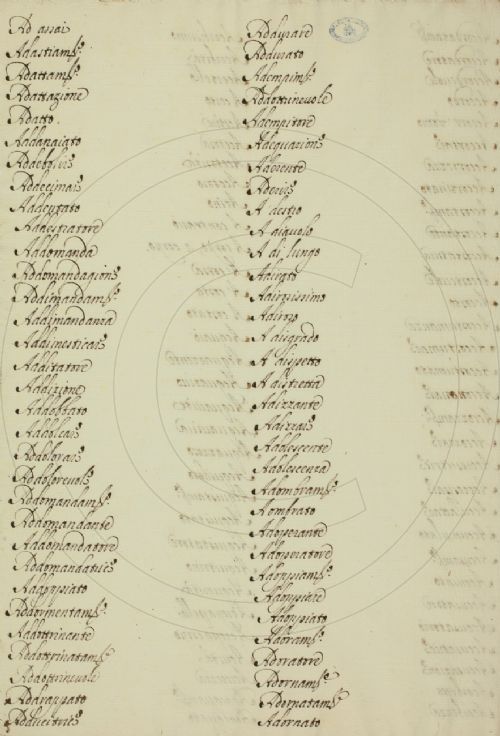 Ad assai
Adastiam.to
Adattam.to
Adattazione
Adatto.
Addanaiato
Addebolis
Addecimais
Addentato
Addestratore
Addomanda
Addomandagions
Addimandam.to
Addimandanza
Addimesticais
Additatore
Addizione
Addobbato
Addolcais
Addolorais
Addolorevols
Addomandam.to
Addomandante
Addomandatore
Addomandatvis
Addoppiato
Addormentam.to
Addottrinante
Addottrinatam.to
Addottrinevole
Addrappato
Adducitris
Addurare
Addurato
Adempim.to
Addottrinevole
Adempitore
Adequazions
Aderente
A destro
A di lungo
Adirato
Adirissimo
Adiroso
A disgrado
A dispetto
A distretta
Adizzante
Adizzais
Adolescente
Adolescenza
Adombram.to
Aombrato
Adoperante
Adoperatore
Adoppiam.to
Adoppiare
Adoppiato
Adoram.to
Adoratore
Adornam.to
Adornatam.to
Adornato